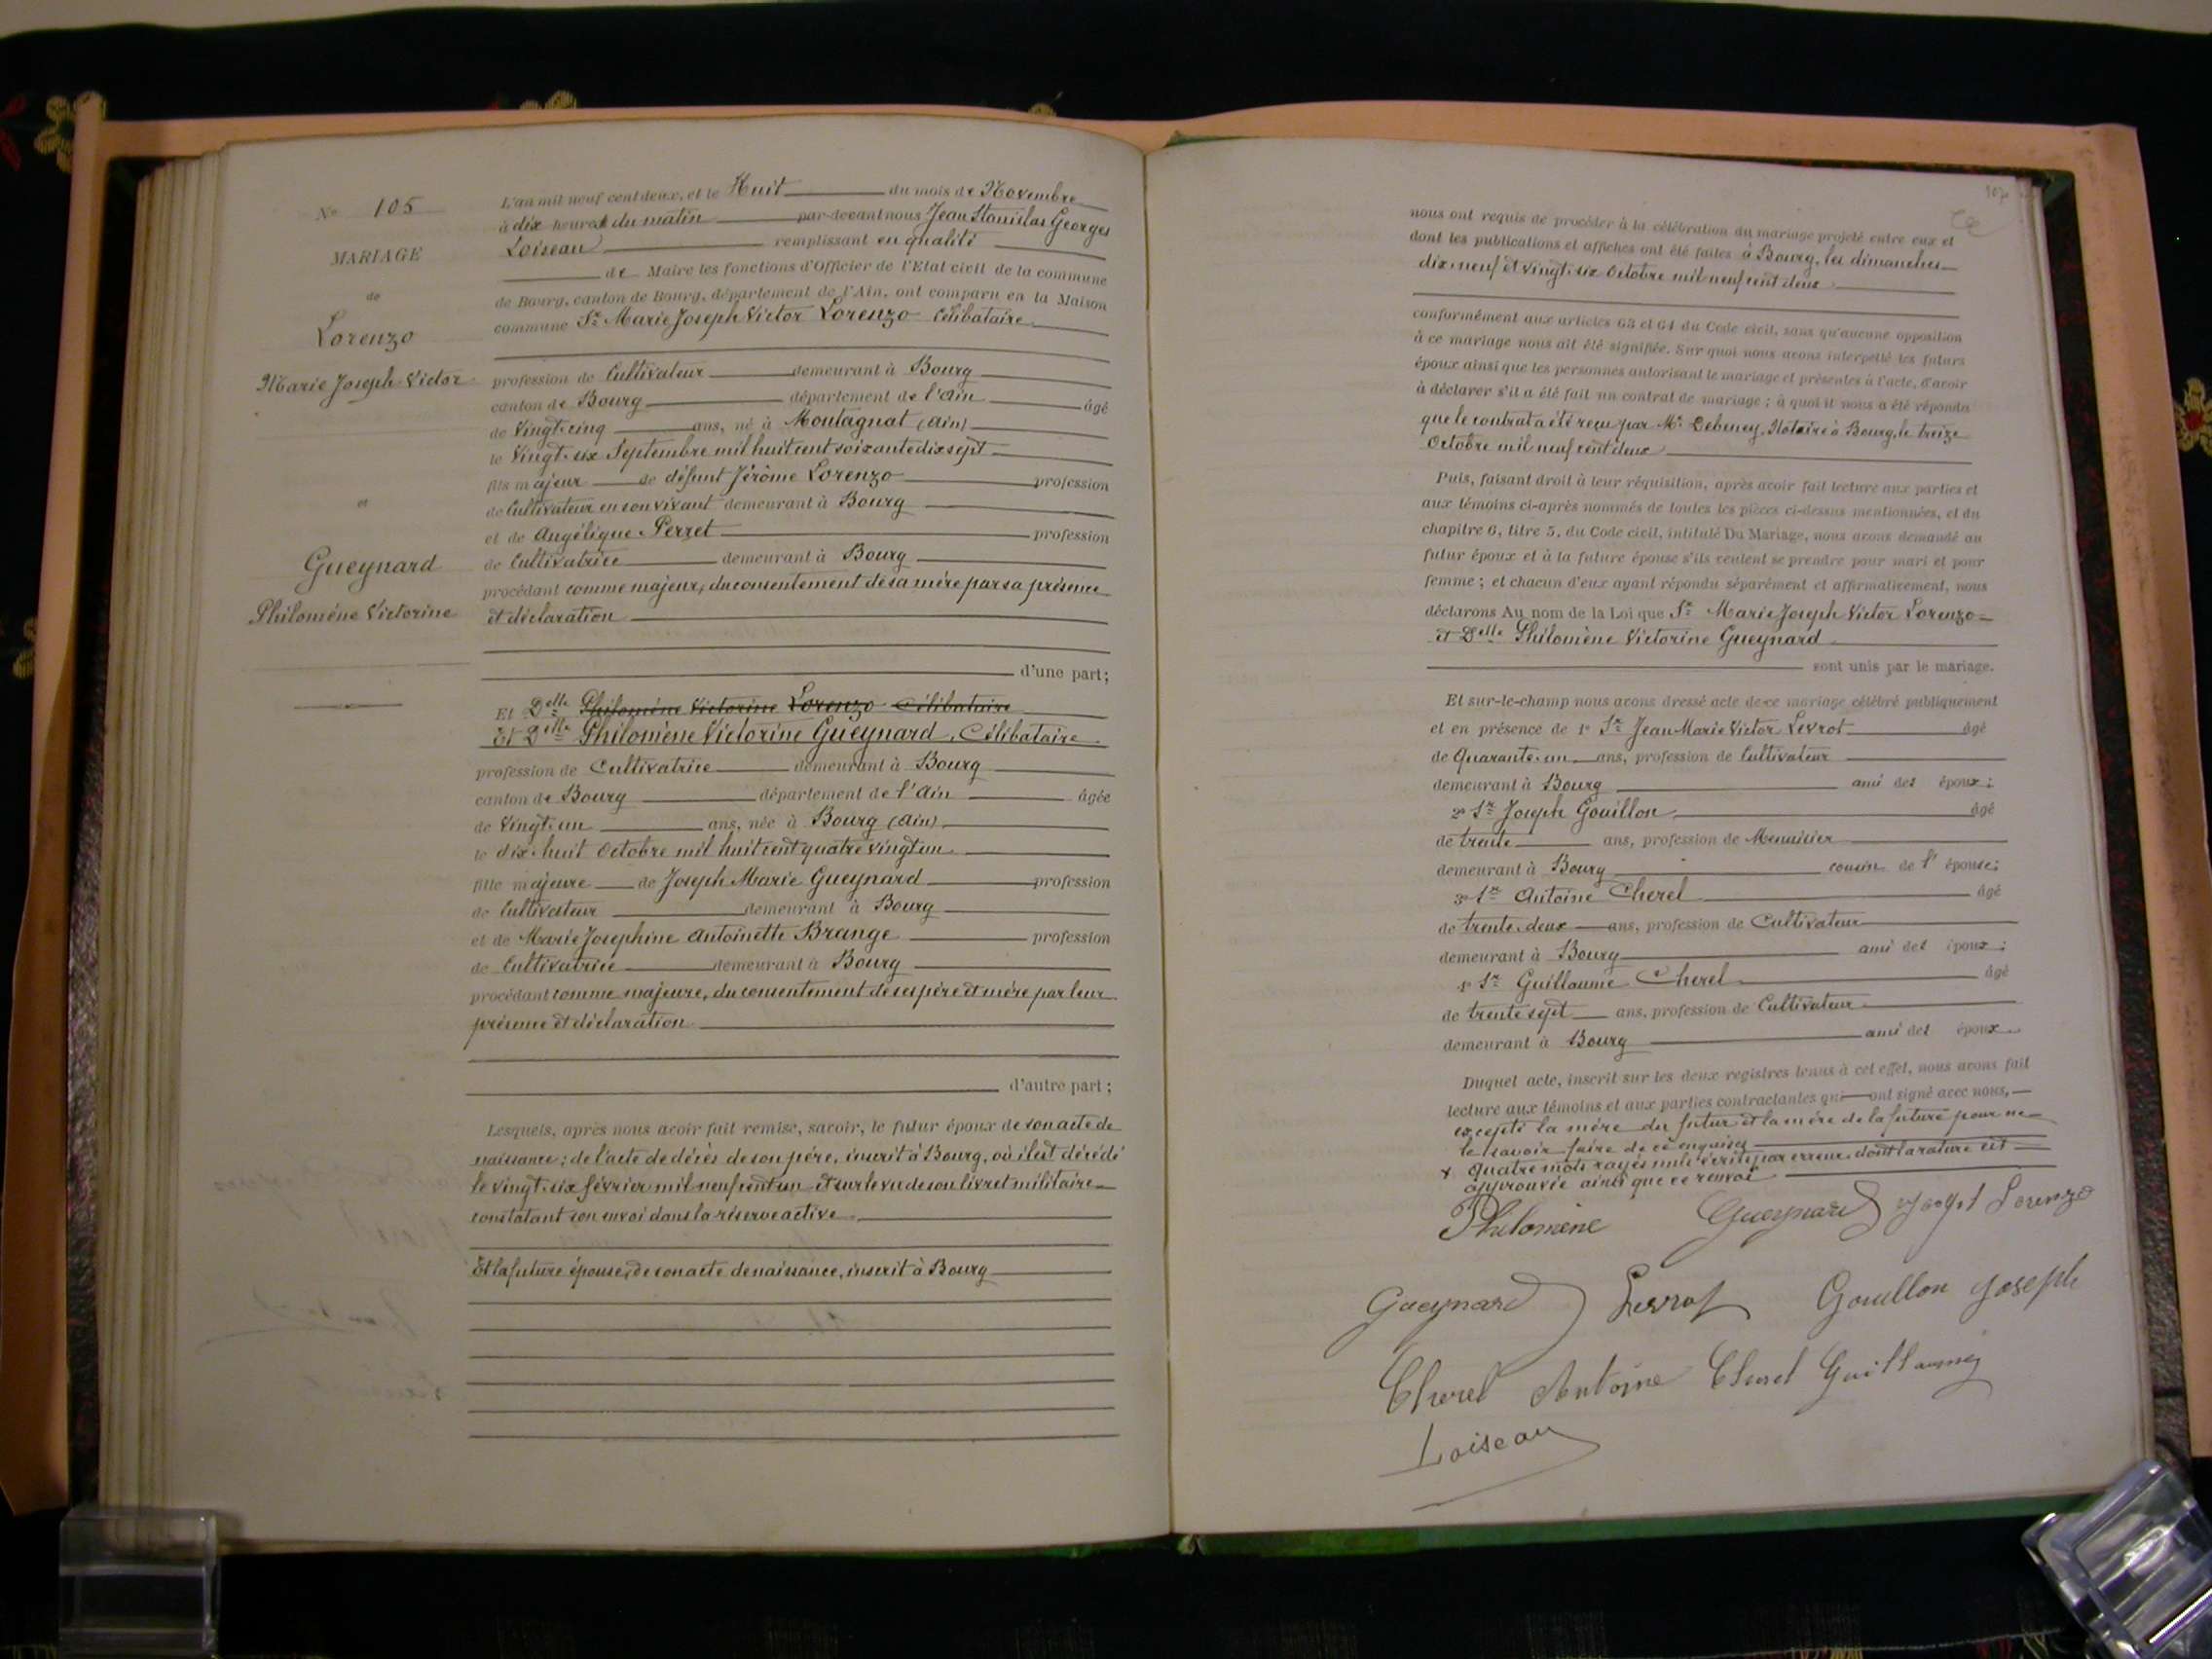 N° 105
MARIAGE
de
Lorenzo
Marie Joseph Victor
et
Gueynard
Philomène Victorine
L'an mil neuf cent deux, et le Huit du mois de Novembre
à dix heures du matin par-devant nous Jean Stanislas Georges
Loiseau remplissant en qualité
de Maire les fonctions d'Officier de l'Etat civil de la commune
de Bourg, canton de Bourg, département de l'Ain, ont comparu en la Maison
commune Sr Marie Joseph Victor Lorenzo Célibataire
profession de Cultivateur demeurant à Bourg
canton de Bourg département de l'Ain âgé
de Vingt-cinq ans, né à Montagnat (Ain)
le Vingt-six Septembre mil huit cent soixante dix sept
fils majeur de défunt Jérôme Lorenzo profession
de Cultivateur en son vivant demeurant à Bourg
et de Angélique Perret profession
de Cultivatrice demeurant à Bourg
procédant comme majeur, du consentement de sa mère par sa présence
et déclaration
d'une part;
Et Delle Philomène Victorine Lorenzo Célibataire
Et Delle Philomène Victorine Gueynard, Célibataire
profession de Cultivatrice demeurant à Bourg
canton de Bourg département de l'Ain âgée
de Vingt-un ans, née à Bourg (Ain)
le dix-huit Octobre mil huit cent quatre vingt un
fille majeure de Joseph Marie Gueynard profession
de Cultivateur demeurant à Bourg
et de Marie Josephine Antoinette Brange profession
de Cultivatrice demeurant à Bourg
procédant comme majeure, du consentement de ses père et mère par leur
présence et déclaration
d'autre part;
Lesquels, après nous avoir fait remise, savoir, le futur époux de son acte de
naissance; de l'acte de décès de son père, inscrit à Bourg, où il est décédé
le vingt-six février mil neuf cent un et sur le vu de son livret militaire
constatant son envoi dans la réserve active
Et la future épouse, de son acte de naissance, inscrit à Bourg
107
nous ont requis de procéder à la célébration du mariage projeté entre eux et
dont les publications et affiches ont été faites à Bourg, les dimanches
dix-neuf et vingt-six Octobre mil neuf cent deux
conformément aux articles 63 et 64 du Code civil, sans qu'aucune opposition
à ce mariage nous ait été signifiée. Sur quoi nous avons interpellé les futurs
époux ainsi que les personnes autorisant le mariage et présentes à l'acte, d'avoir
à déclarer s'il a été fait un contrat de mariage; à quoi il nous a été répondu
que le contrat a été reçu par Me Debeney, Notaire à Bourg, le treize
Octobre mil neuf cent deux
Puis, faisant droit à leur réquisition, après avoir fait lecture aux parties et
aux témoins ci-après nommés de toutes les pièces ci-dessus mentionnées, et du
chapitre 6, titre 5, du Code civil, intitulé Du Mariage, nous avons demandé au
futur époux et à la future épouse s'ils veulent se prendre pour mari et pour
femme; et chacun d'eux ayant répondu séparément et affirmativement, nous
déclarons Au nom de la Loi que Sr Marie Joseph Victor Lorenzo
et Delle Philomène Victorine Gueynard
sont unis par le mariage.
Et sur-le-champ nous avons dressé acte de ce mariage célébré publiquement
et en présence de 1° Sr Jean Marie Victor Levrot âgé
de Quarante-un ans, profession de Cultivateur
demeurant à Bourg ami des époux;
2° Sr Joseph Gouillon âgé
de trente ans, profession de Menuisier
demeurant à Bourg cousin de l'épouse;
3° Sr Antoine Cherel âgé
de trente-deux ans, profession de Cultivateur
demeurant à Bourg ami des époux;
4° Sr Guillaume Cherel âgé
de trente sept ans, profession de Cultivateur
demeurant à Bourg ami des époux
Duquel acte, inscrit sur les deux registres tenus à cet effet, nous avons fait
lecture aux témoins et aux parties contractantes qui ont signé avec nous,
excepté la mère du futur et la mère de la future pour ne
le savoir faire de ce enquises
x Quatre mots rayés nuls écrits par erreur dont la rature est
approuvée ainsi que ce renvoi
Philomène Gueynard Joseph Lorenzo
Gueynard Levrot Gouillon Joseph
Cherel Antoine Cherel Guillaume
Loiseau